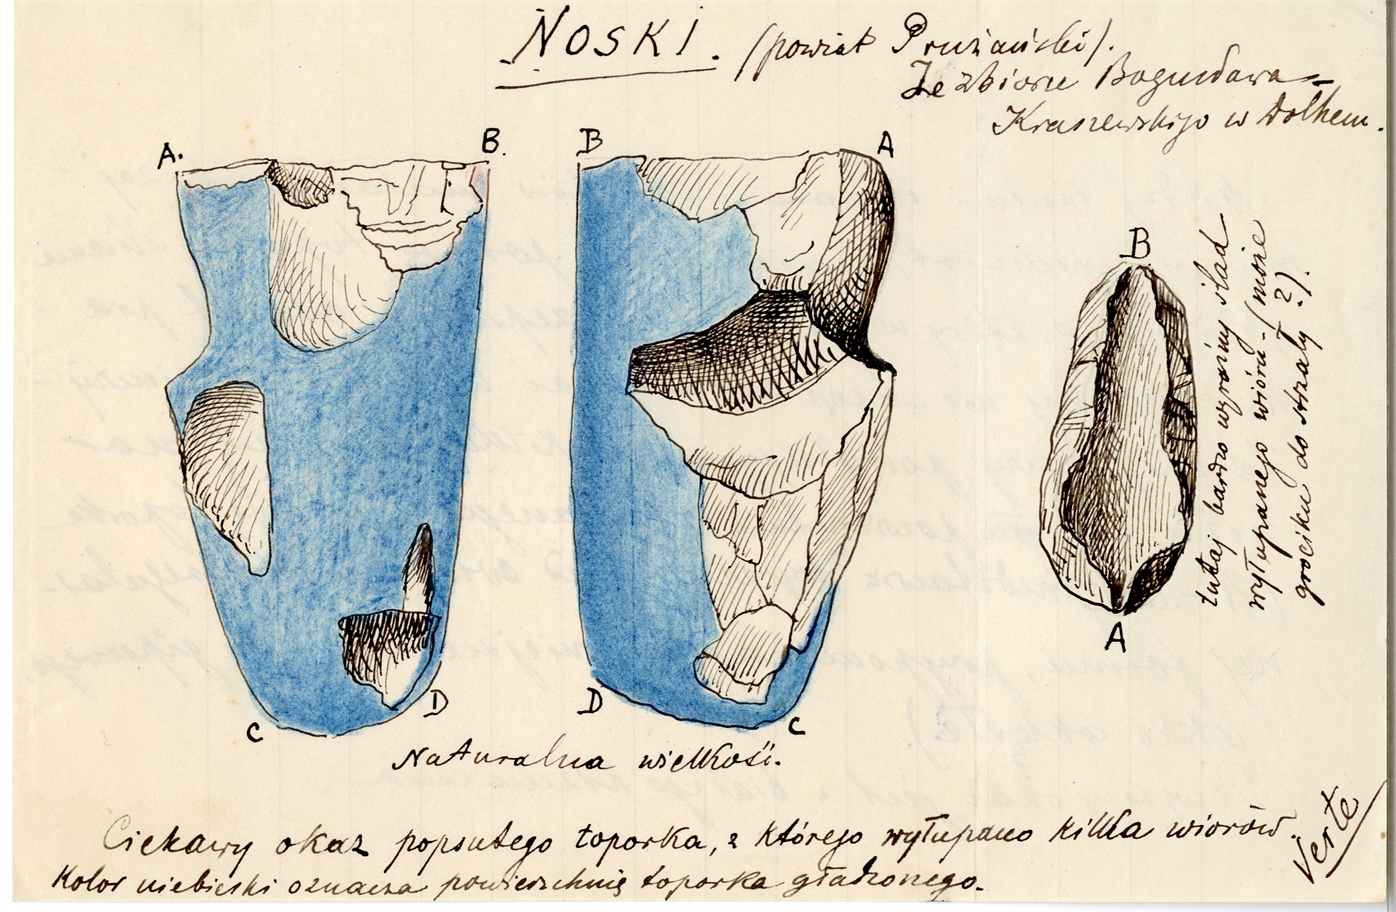 NOSKI. (powiat Prużański).
Ze zbioru Bogusława
Kraszewskiego w Dołhem.
A. B. B A
B
tutaj bardzo wyraźny ślad
wyłupanego wióra - (może
grociku do strzały?).
A
C D D C
Naturalna wielkość.
Ciekawy okaz popsutego toporka, z którego wyłupano kilka wiorów.
Kolor niebieski oznacza powierzchnię toporka gładzonego.
Verte